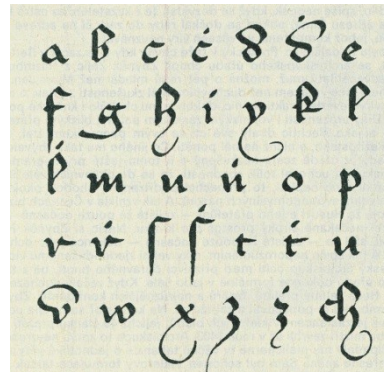 a b c ċ d ḋ e
f g h i y k l
l̇ m n ṅ o p
r ṙ ſ ẛ t ṫ u
v w x z ż ch